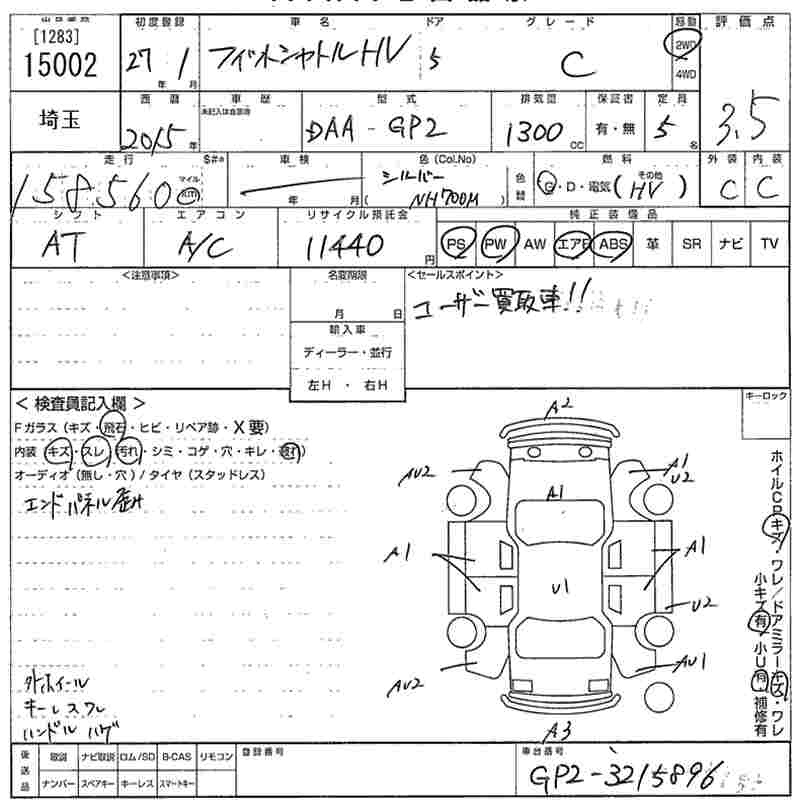 [1283]
15002
初度登録
27年 1月
車名
フィットシャトルHV
ドア
5
グレード
C
駆動
2WD
4WD
評価点
3.5
埼玉
西暦
2015年
車歴
未記入は自家用
型式
DAA-GP2
排気量
1300 CC
保証書
有・無
定員
5名
外装 C
内装 C
走行
158560
マイル
KM
S#*
車検
年 月
色 (Col.No)
シルバー
(NH700M)
色替
燃料
G・D・電気 (その他 HV)
シフト
AT
エアコン
A/C
リサイクル預託金
11440円
純正装備品
PS PW AW エアB ABS 革 SR ナビ TV
<注意事項>
名変期限
月 日
輸入車
ディーラー・並行
左H・右H
<セールスポイント>
ユーザー買取車!!
<検査員記入欄>
Fガラス (キズ・飛石・ヒビ・リペア跡・X要)
内装 (キズ・スレ・汚れ・シミ・コゲ・穴・キレ・
オーディオ (無し・穴) / タイヤ (スタッドレス)
エンドパネル歴
外ホイール
キーレスワレ
ハンドルハゲ
キーロック
A2
AU2
A1
U2
A1
A1
A1
U1
U2
AU2
AU1
A3
ホイルCPキズ・ワレ/ドアミラーキズ・ワレ
小キズ有・小U有・補修有
後送品
取説 ナビ取説 ロム/SD B-CAS リモコン
ナンバー スペアキー キーレス スマートキー
登録番号
車台番号
GP2-3215896